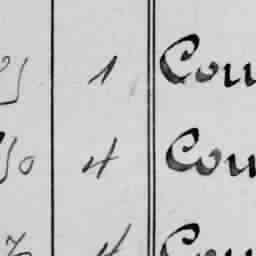 1 Cou
50 4 Cou
4 Cou